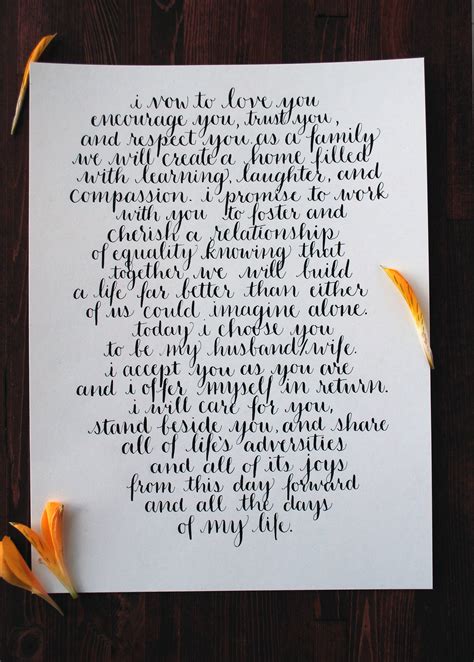 i vow to love you
encourage you, trust you,
and respect you as a family
we will create a home filled
with learning, laughter, and
compassion. i promise to work
with you to foster and
cherish a relationship
of equality knowing that
together we will build
a life far better than either
of us could imagine alone.
today i choose you
to be my husband/wife.
i accept you as you are
and i offer myself in return.
i will care for you,
stand beside you, and share
all of life's adversities
and all of its joys
from this day forward
and all the days
of my life.